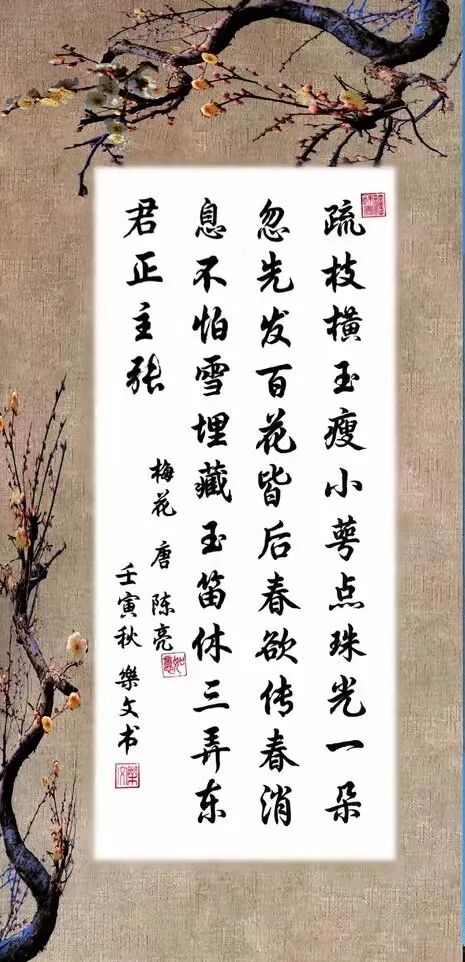 疏枝横玉瘦小萼点珠光一朵
忽先发百花皆后春欲传春消
息不怕雪埋藏玉笛休三弄东
君正主张
梅花 唐 陈亮
壬寅秋 樂文书